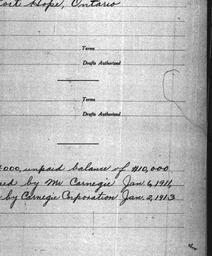 Port Hope, Ontario
Terms
Drafts Authorized
Terms
Drafts Authorized
000, unpaid balance of $10,000
by Mr. Carnegie Jan. 6, 1911,
by Carnegie Corporation Jan. 2, 1913